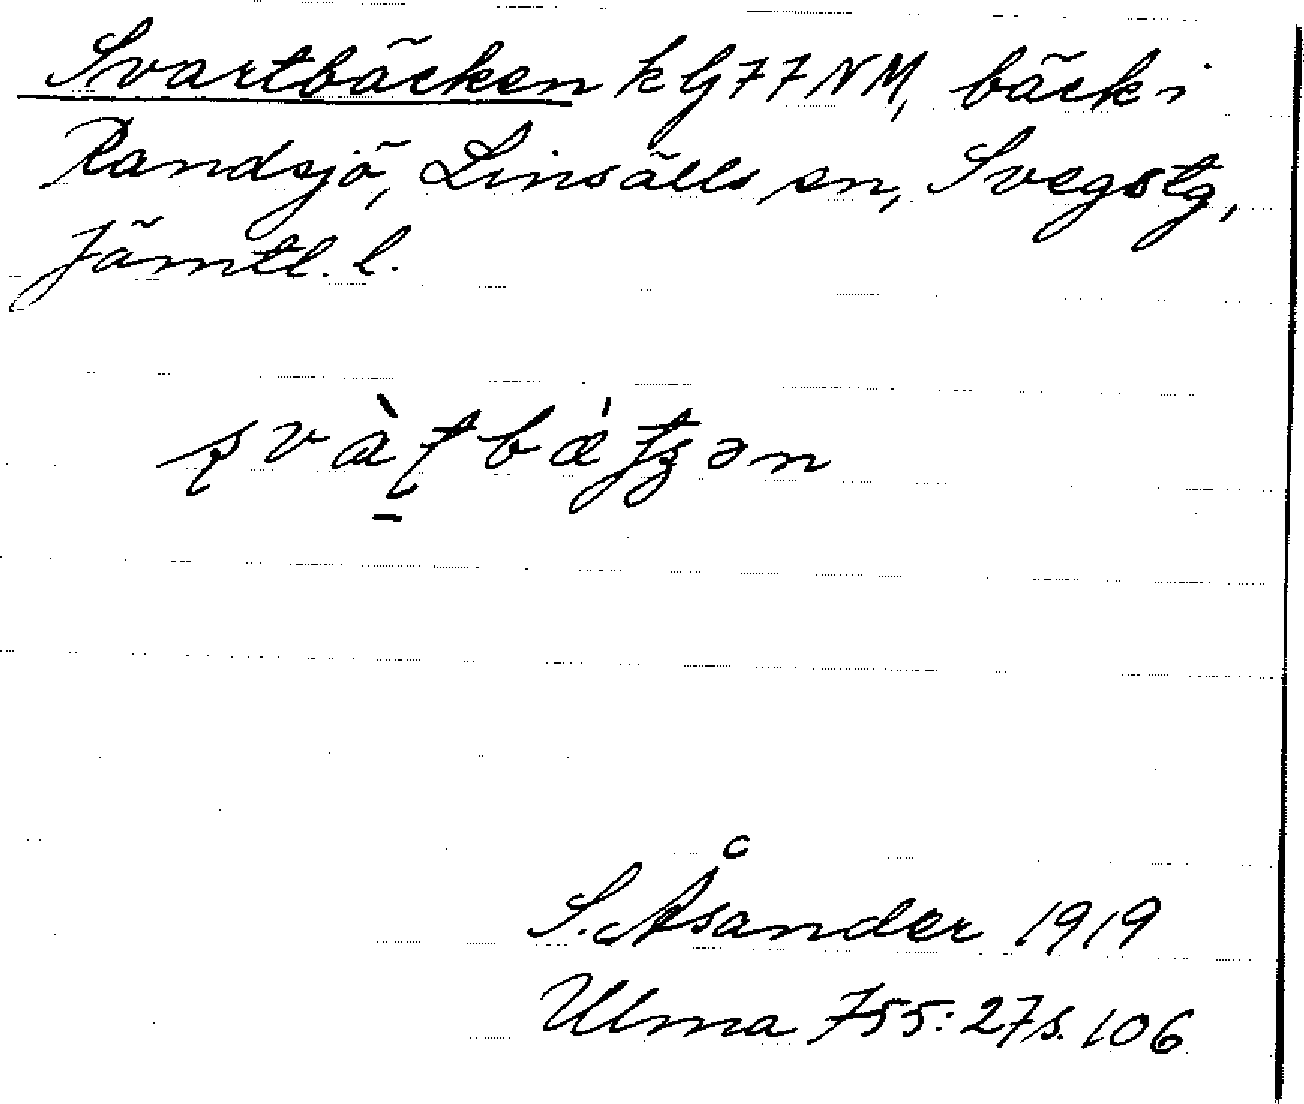 Svartbäcken k G77NM, bäck i
Randsjö, Linsälls sn, Svegs tg,
Jämtl. l.
S. Åsander 1919
Ulma 755:27 s. 106